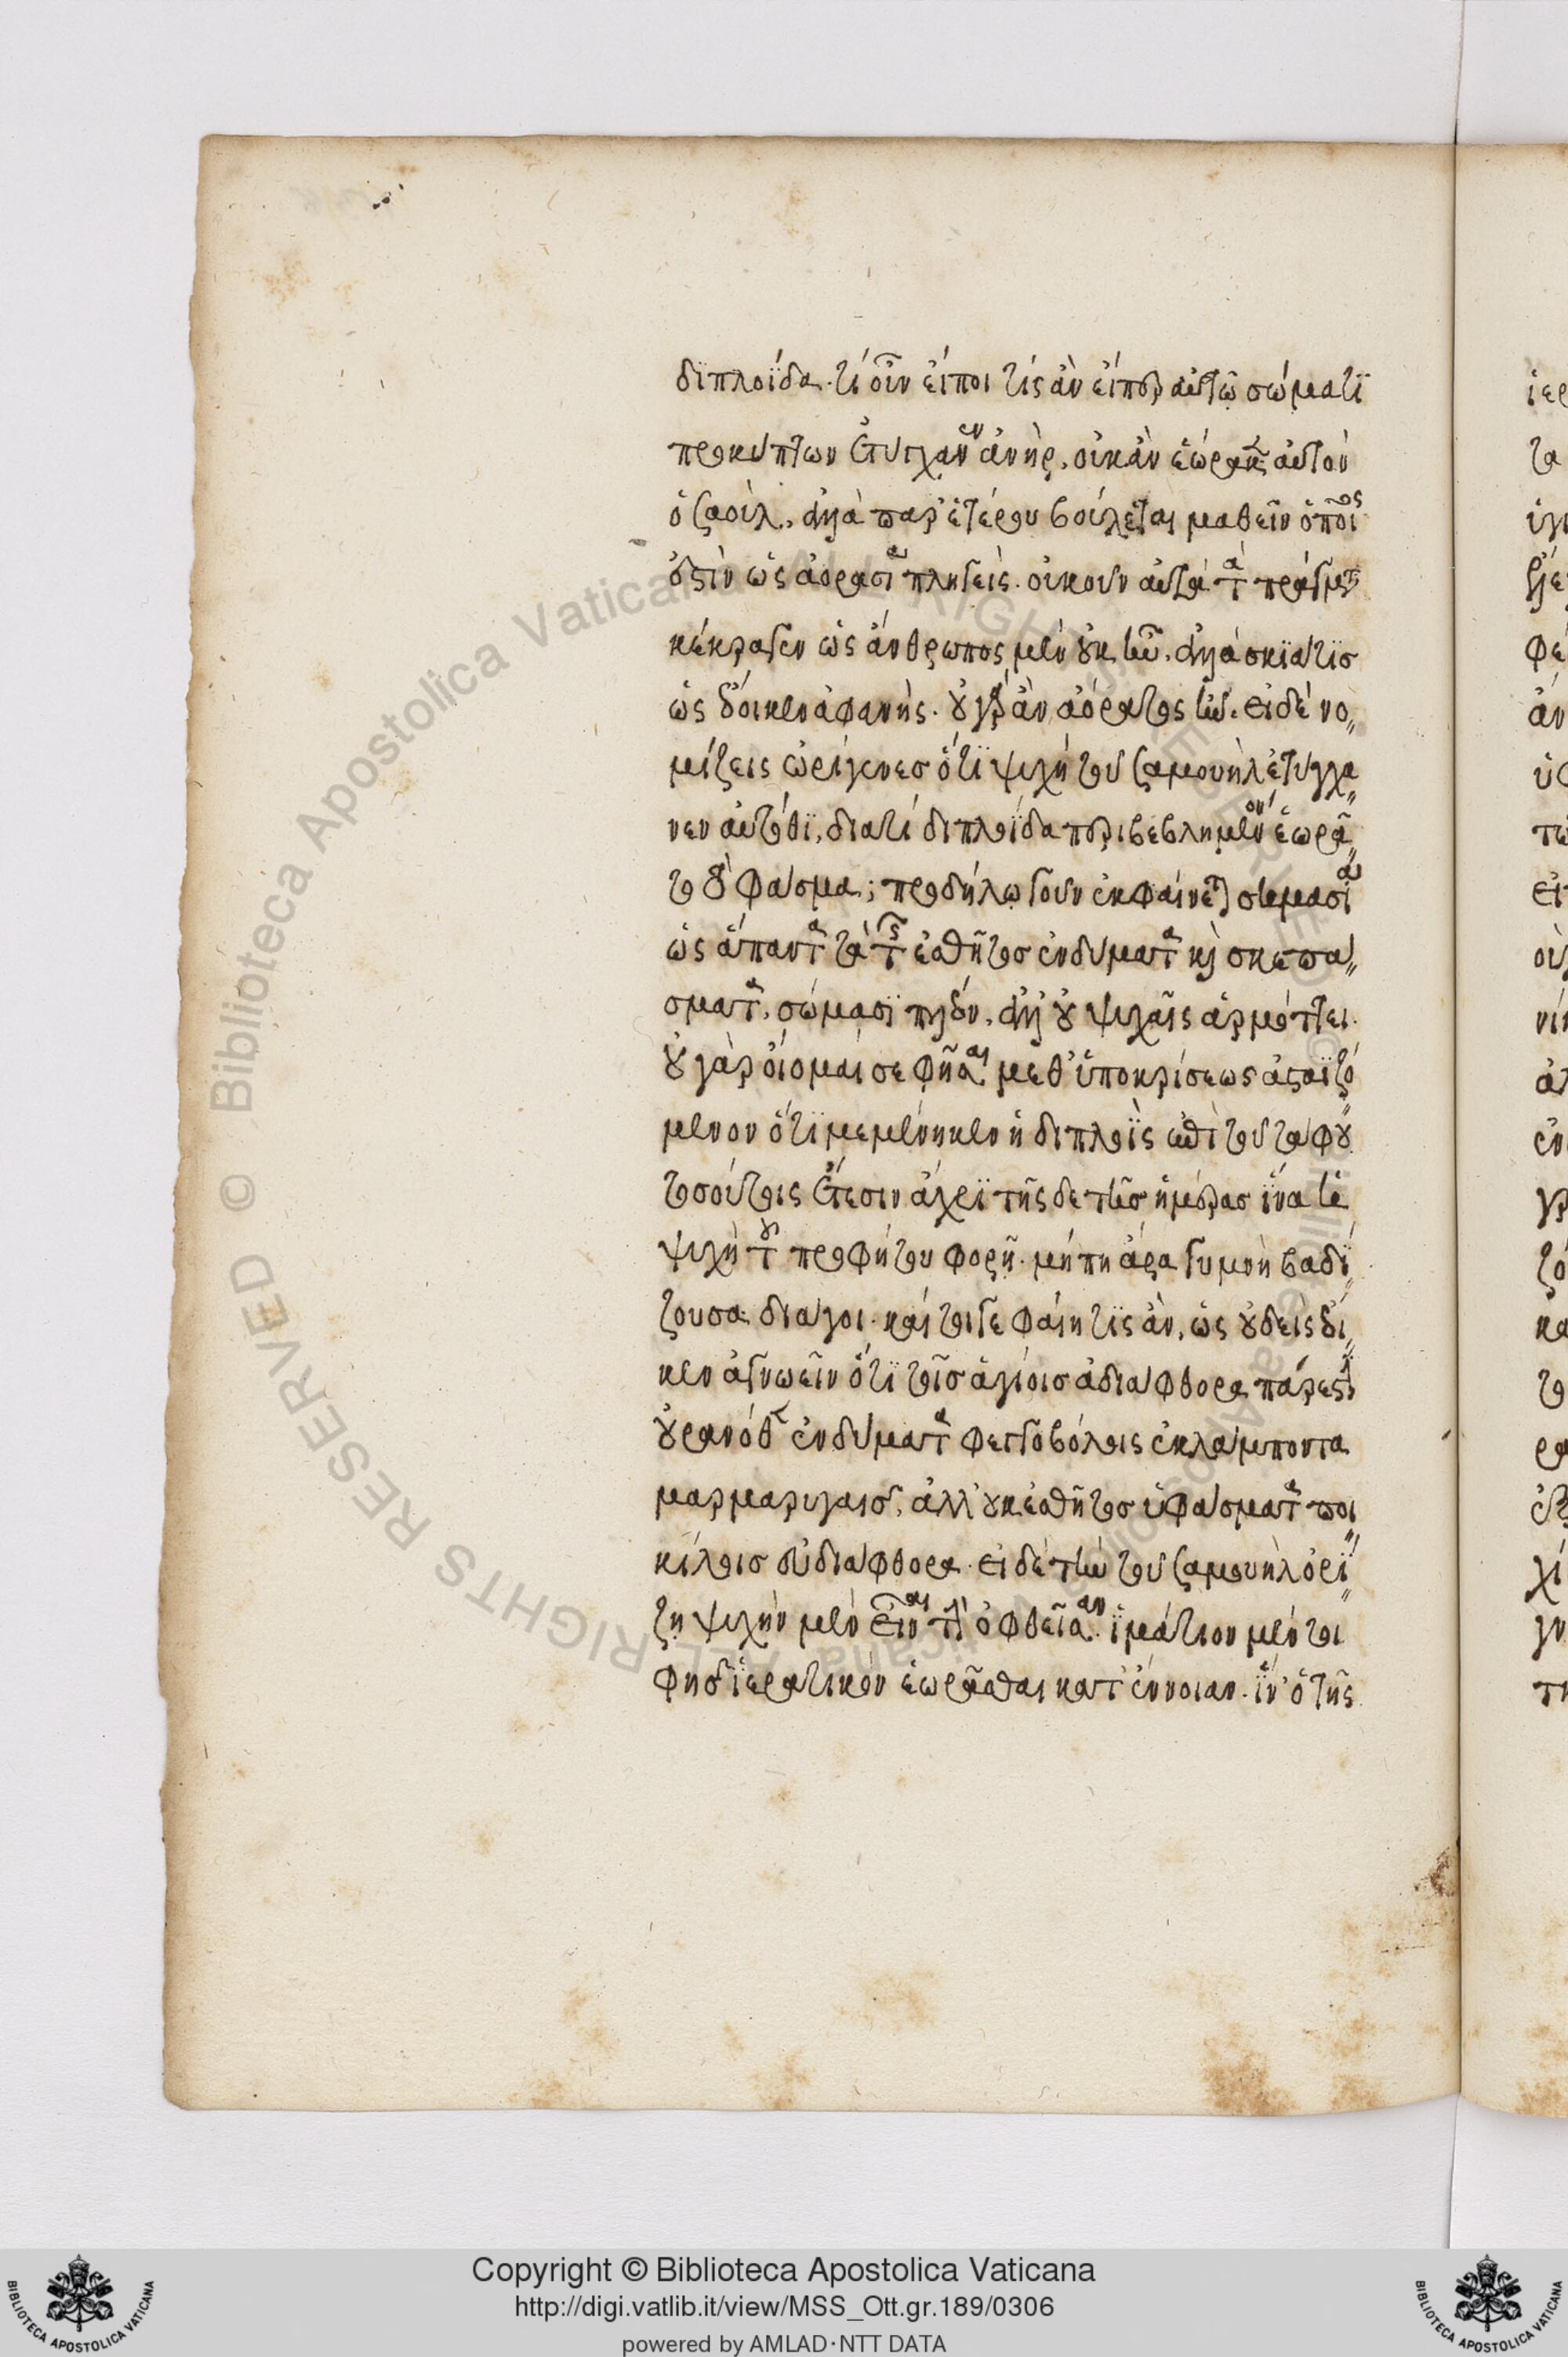 διπλοΐδα. τί οὖν εἴποι τίς ἂν εἴπερ αὐτῶ σώματϊ
προκύπτων ἐτύγχανεν ἀνὴρ, οὐκ ἂν ἑώρακεν αὐτὸν
ὁ ζαοὺλ, ἀλλὰ παρ' ἑτέρου βούλεται μαθεῖν ὁποῖος
ἐστὶν ὡς ἀορασίαν πληγείς. οὐκοῦν αὐτὰ τὰ πράγματα
κέκραγεν ὡς ἄνθρωπος μὲν οὐκ ἦν, ἀλλὰ σκϊά τϊσ
ὡς ἔοικεν ἀφανής. οὐ γὰρ ἂν ἀόρατος ἦν. εἰ δὲ νο
μίζεις ὠρίγενεσ ὅτϊ ψυχὴ τοῦ ζαμουὴλ ἐτύγχα
νεν αὐτόθϊ, διατί διπλοΐδα περιβεβλημένον ἑωρᾶ
το τὸ φάσμα; προδήλω γοῦν ἐκφαίνεται σημασίαν
ὡς ἅπαντα τὰ τῆς ἐσθῆτοσ ἐνδύματα καὶ σκεπά
σματα, σώμασϊ πλὴν, ἀλλ' οὐ ψυχαῖς ἁρμόττει.
οὐ γὰρ οἶομαί σε φῆσαι μεθ' ὑποκρίσεως ἀστεϊζό
μενον ὅτϊ μεμένηκεν ἡ διπλοῒς ἐπὶ τοῦ τάφου
τοσούτοις ἔτεσιν ἄχρϊ τῆς δε τῆσ ἡμέρασ ἵνα ἡ
ψυχὴ τοῦ προφήτου φορῇ. μή πη ἄρα γυμνὴ βαδΐ
ζουσα διάγοι. καί τοιγε φαίη τϊς ἂν, ὡς οὐδεὶς ἔοι
κεν ἀγνωεῖν ὅτϊ τοῖσ ἁγίοισ ἀδιάφθορα πάρεστϊ
οὐρανόθεν ἐνδύματα φεγγοβόλοις ἐκλάμποντα
μαρμαρυγαισ, ἀλλ' οὐκ ἐσθῆτοσ ὑφάσματα ποι
κίλοισ εὐδιάφθορα. εἰ δὲ τὴν τοῦ ζαμουὴλ ὁρΐ
ζη ψυχὴν μὲν εἶναι τὴν ὀφθεῖσαν. ἱμάτιον μέν τοι
φησϊ ἱερατικὸν ἑωρᾶσθαι κατ' ἔννοιαν. ἵν' ὁ τῆς
Copyright © Biblioteca Apostolica Vaticana
http://digi.vatlib.it/view/MSS_Ott.gr.189/0306
powered by AMLAD·NTT DATA